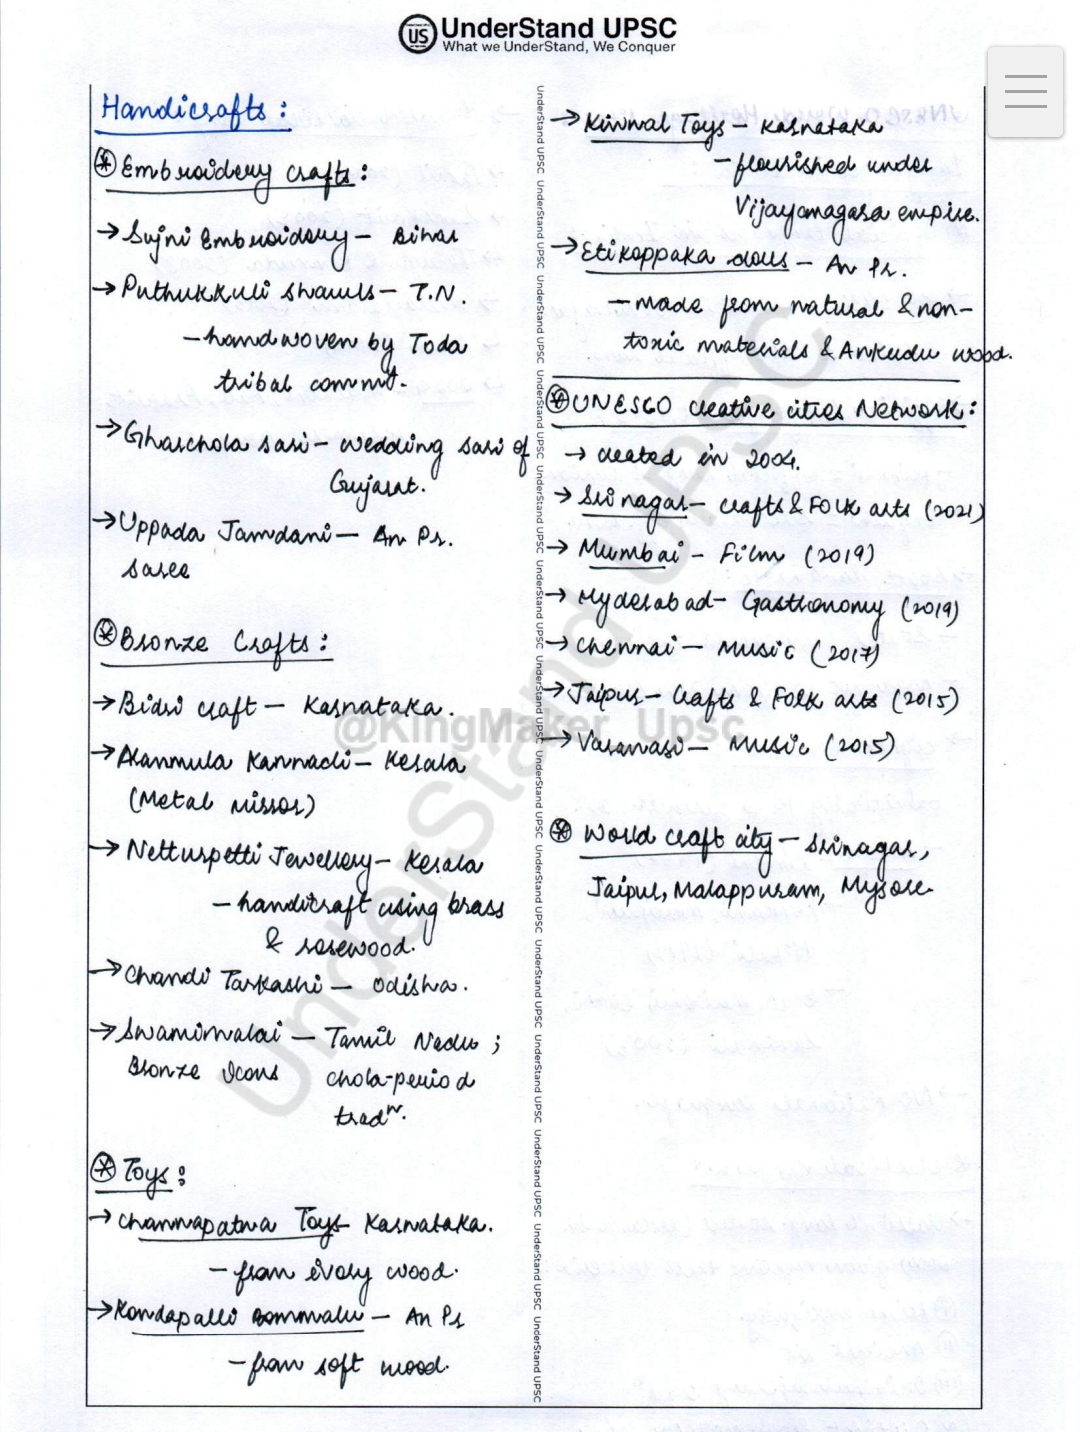 UnderStand UPSC
What we UnderStand, We Conquer
Handicrafts :
Embroidery crafts :
→ Sujni Embroidery – Bihar
→ Puthukkuli shawls – T.N.
– handwoven by Toda
tribal commt.
→ Gharchola sari – wedding sari of
Gujarat.
→ Uppada Jamdani – An Pr.
saree
Bronze Crafts :
→ Bidri craft – Karnataka.
→ Aranmula Kannadi – Kerala
(Metal mirror)
→ Netturpetti Jewellery – Kerala
– handicraft using brass
& rosewood.
→ Chandi Tarkashi – Odisha.
→ Swamimalai – Tamil Nadu ;
Bronze Icons chola-period
tradn.
Toys :
→ Channapatna Toys – Karnataka.
– from ivory wood.
→ Kondapalli Bommalu – An Pr
– from soft wood.
→ Kinnal Toys – Karnataka
– flourished under
Vijayanagara empire.
→ Etikoppaka dolls – An Pr.
– made from natural & non-
toxic materials & Ankudu wood.
UNESCO creative cities Network :
→ created in 2004.
→ Srinagar – crafts & Folk arts (2021)
→ Mumbai – Film (2019)
→ Hyderabad – Gastronomy (2019)
→ Chennai – Music (2017)
→ Jaipur – Crafts & Folk arts (2015)
→ Varanasi – Music (2015)
World craft city – Srinagar,
Jaipur, Malappuram, Mysore.
@KingMaker_Upsc
UnderStand UPSC